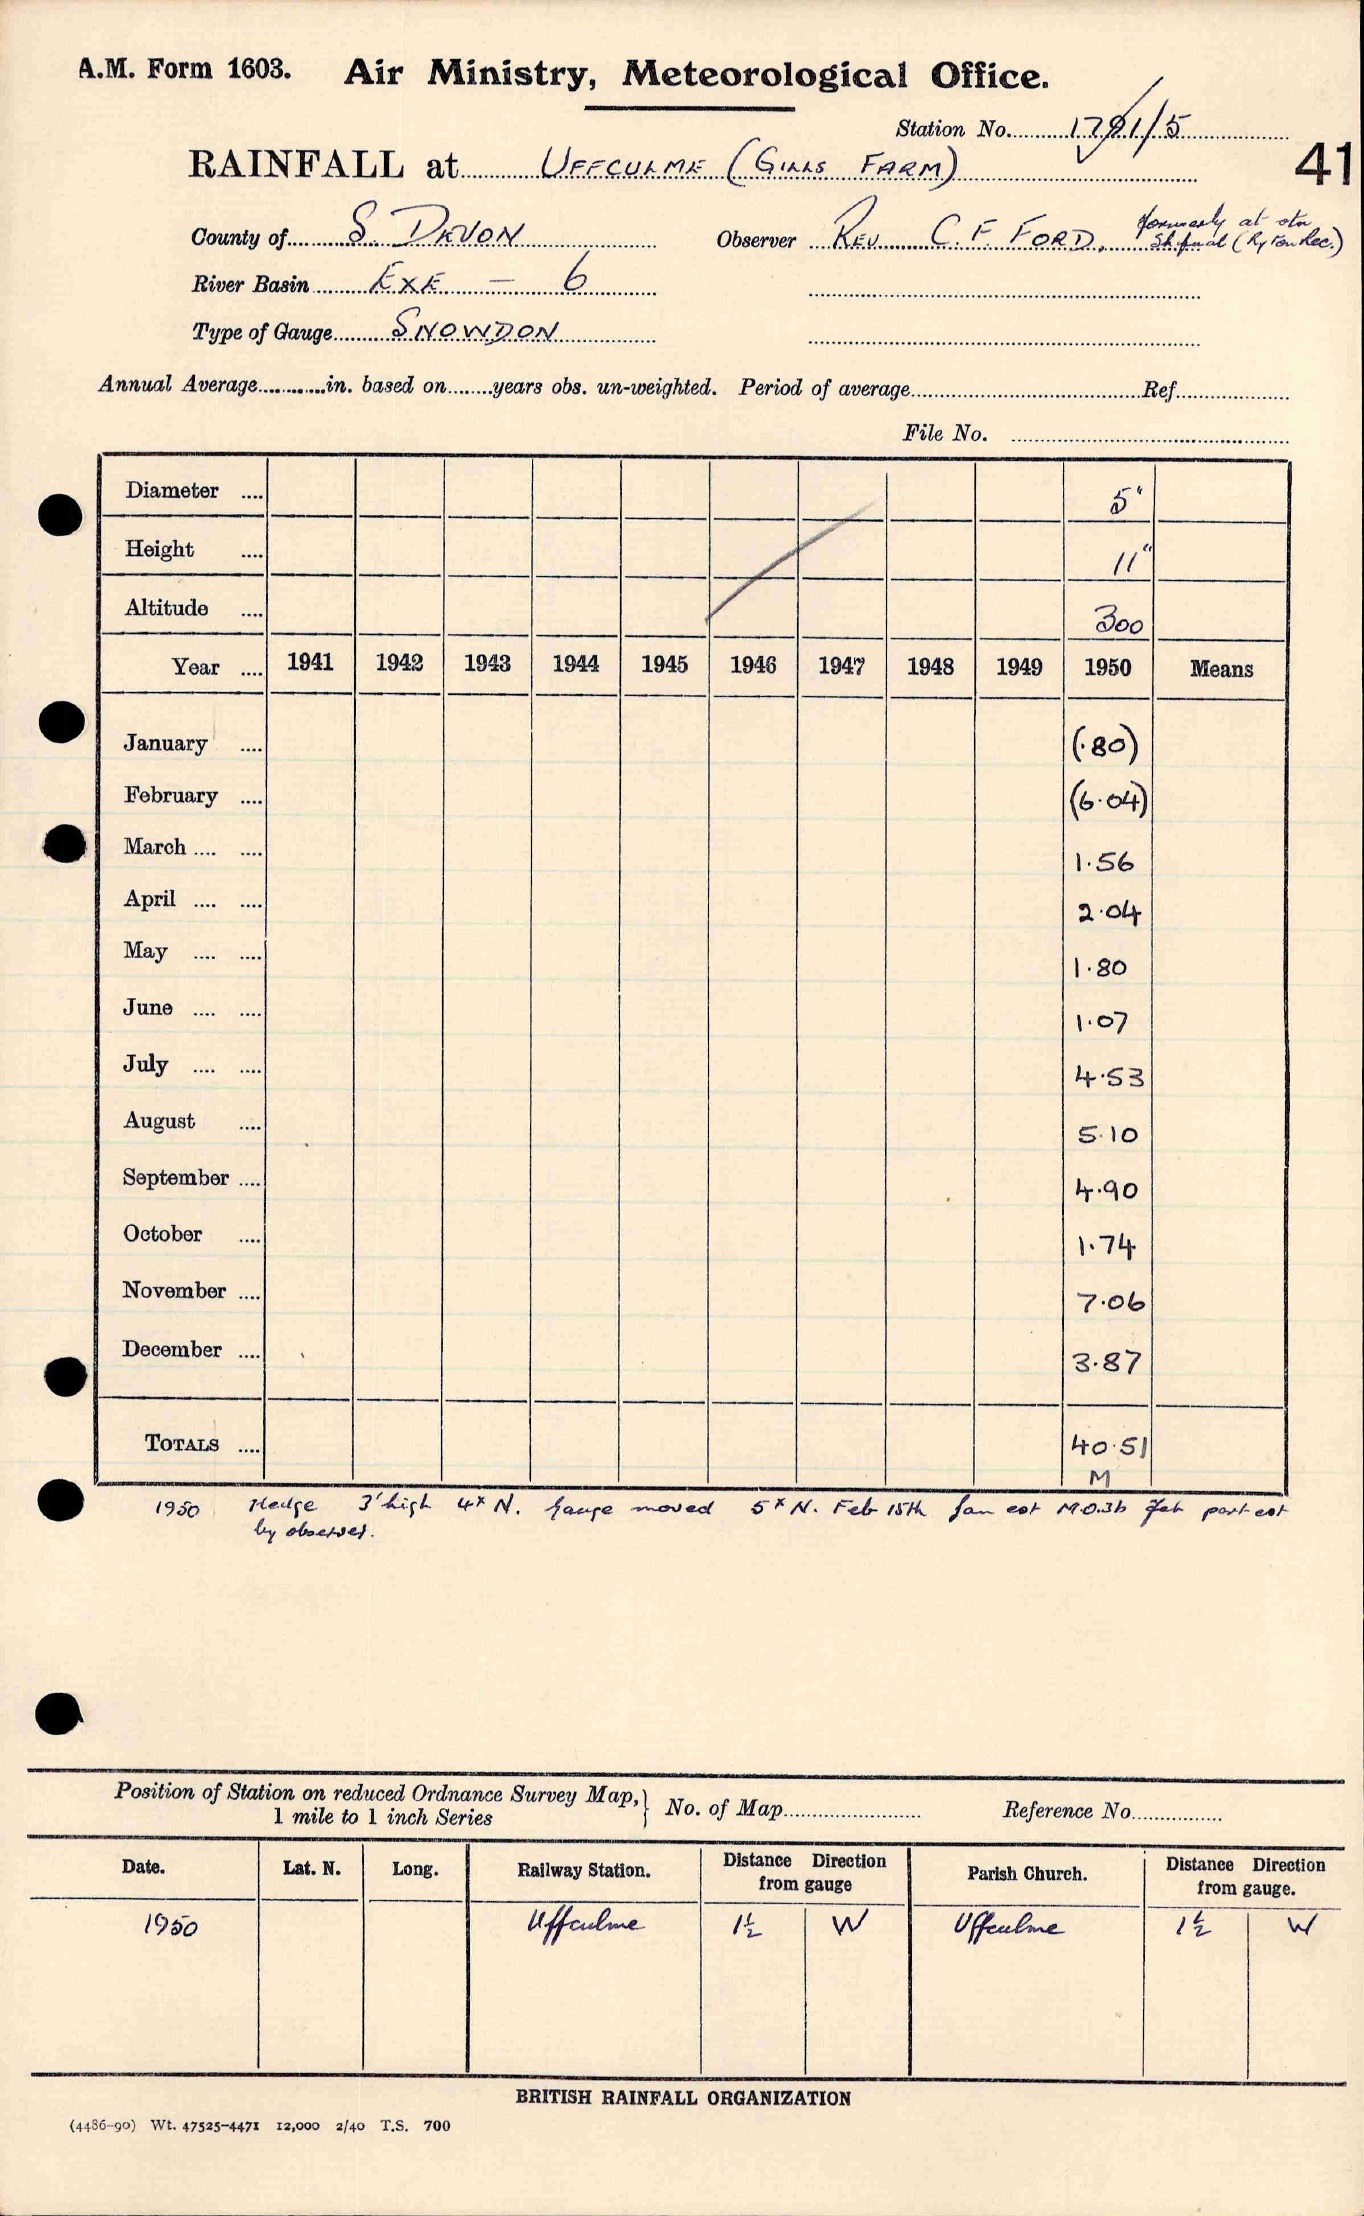 A.M. Form 1603. Air Ministry, Meteorological Office.
Station No. 1791/5
41
RAINFALL at UFFCULME (GILLS FARM)
County of S. DEVON Observer REV C. F. FORD, formerly at stn
Shifnal (Ryton Rec.)
River Basin EXE — 6
Type of Gauge SNOWDON
Annual Average............in. based on........years obs. un-weighted. Period of average........ Ref........
File No. ........
Diameter .... 5"
Height .... 11"
Altitude .... 300
Year .... 1941 1942 1943 1944 1945 1946 1947 1948 1949 1950 Means
January .... (.80)
February .... (6.04)
March .... .... 1.56
April .... .... 2.04
May .... .... 1.80
June .... .... 1.07
July .... .... 4.53
August .... 5.10
September .... 4.90
October .... 1.74
November .... 7.06
December .... 3.87
TOTALS .... 40.51
M
1950 Hedge 3' high 4x N. Gauge moved 5x N. Feb 15th Jan est M.O.3b Feb part est
by observer.
Position of Station on reduced Ordnance Survey Map, } No. of Map........ Reference No........
1 mile to 1 inch Series
Date. Lat. N. Long. Railway Station. Distance Direction from gauge Parish Church. Distance Direction from gauge.
1950 Uffculme 1½ W Uffculme 1½ W
BRITISH RAINFALL ORGANIZATION
(4486-90) Wt. 47525-4471 12,000 2/40 T.S. 700